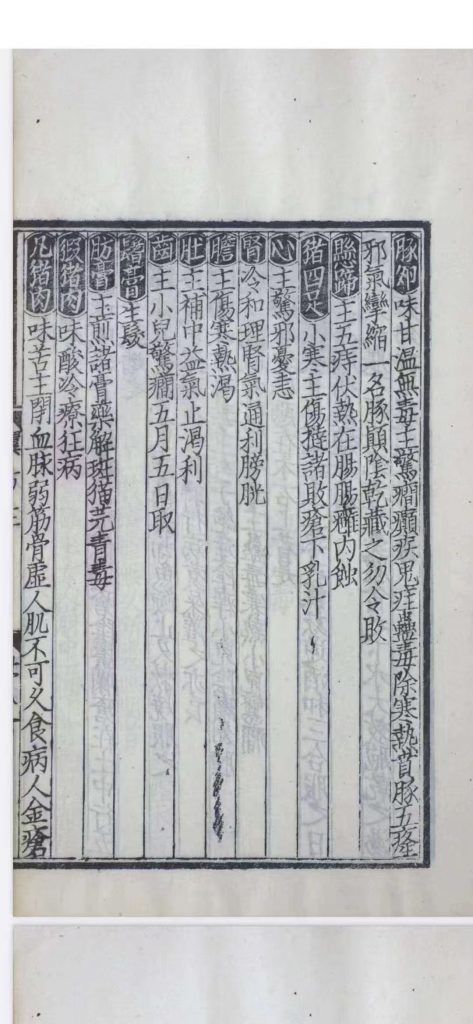 豚卵味甘溫無毒主驚癎癲疾鬼疰蠱毒除寒熱賁豚五癃
邪氣攣縮一名豚顛陰乾藏之勿令敗
懸蹄主五痔伏熱在腸腸癰內蝕
猪四足小寒主傷撻諸敗瘡下乳汁
心主驚邪憂恚
腎冷和理腎氣通利膀胱
膽主傷寒熱渴
肚主補中益氣止渴利
齒主小兒驚癎五月五日取
鬐膏生髮
肪膏主煎諸膏藥解斑猫芫青毒
猳猪肉味酸冷療狂病
凡猪肉味苦主閉血脉弱筋骨虛人肌不可久食病人金瘡